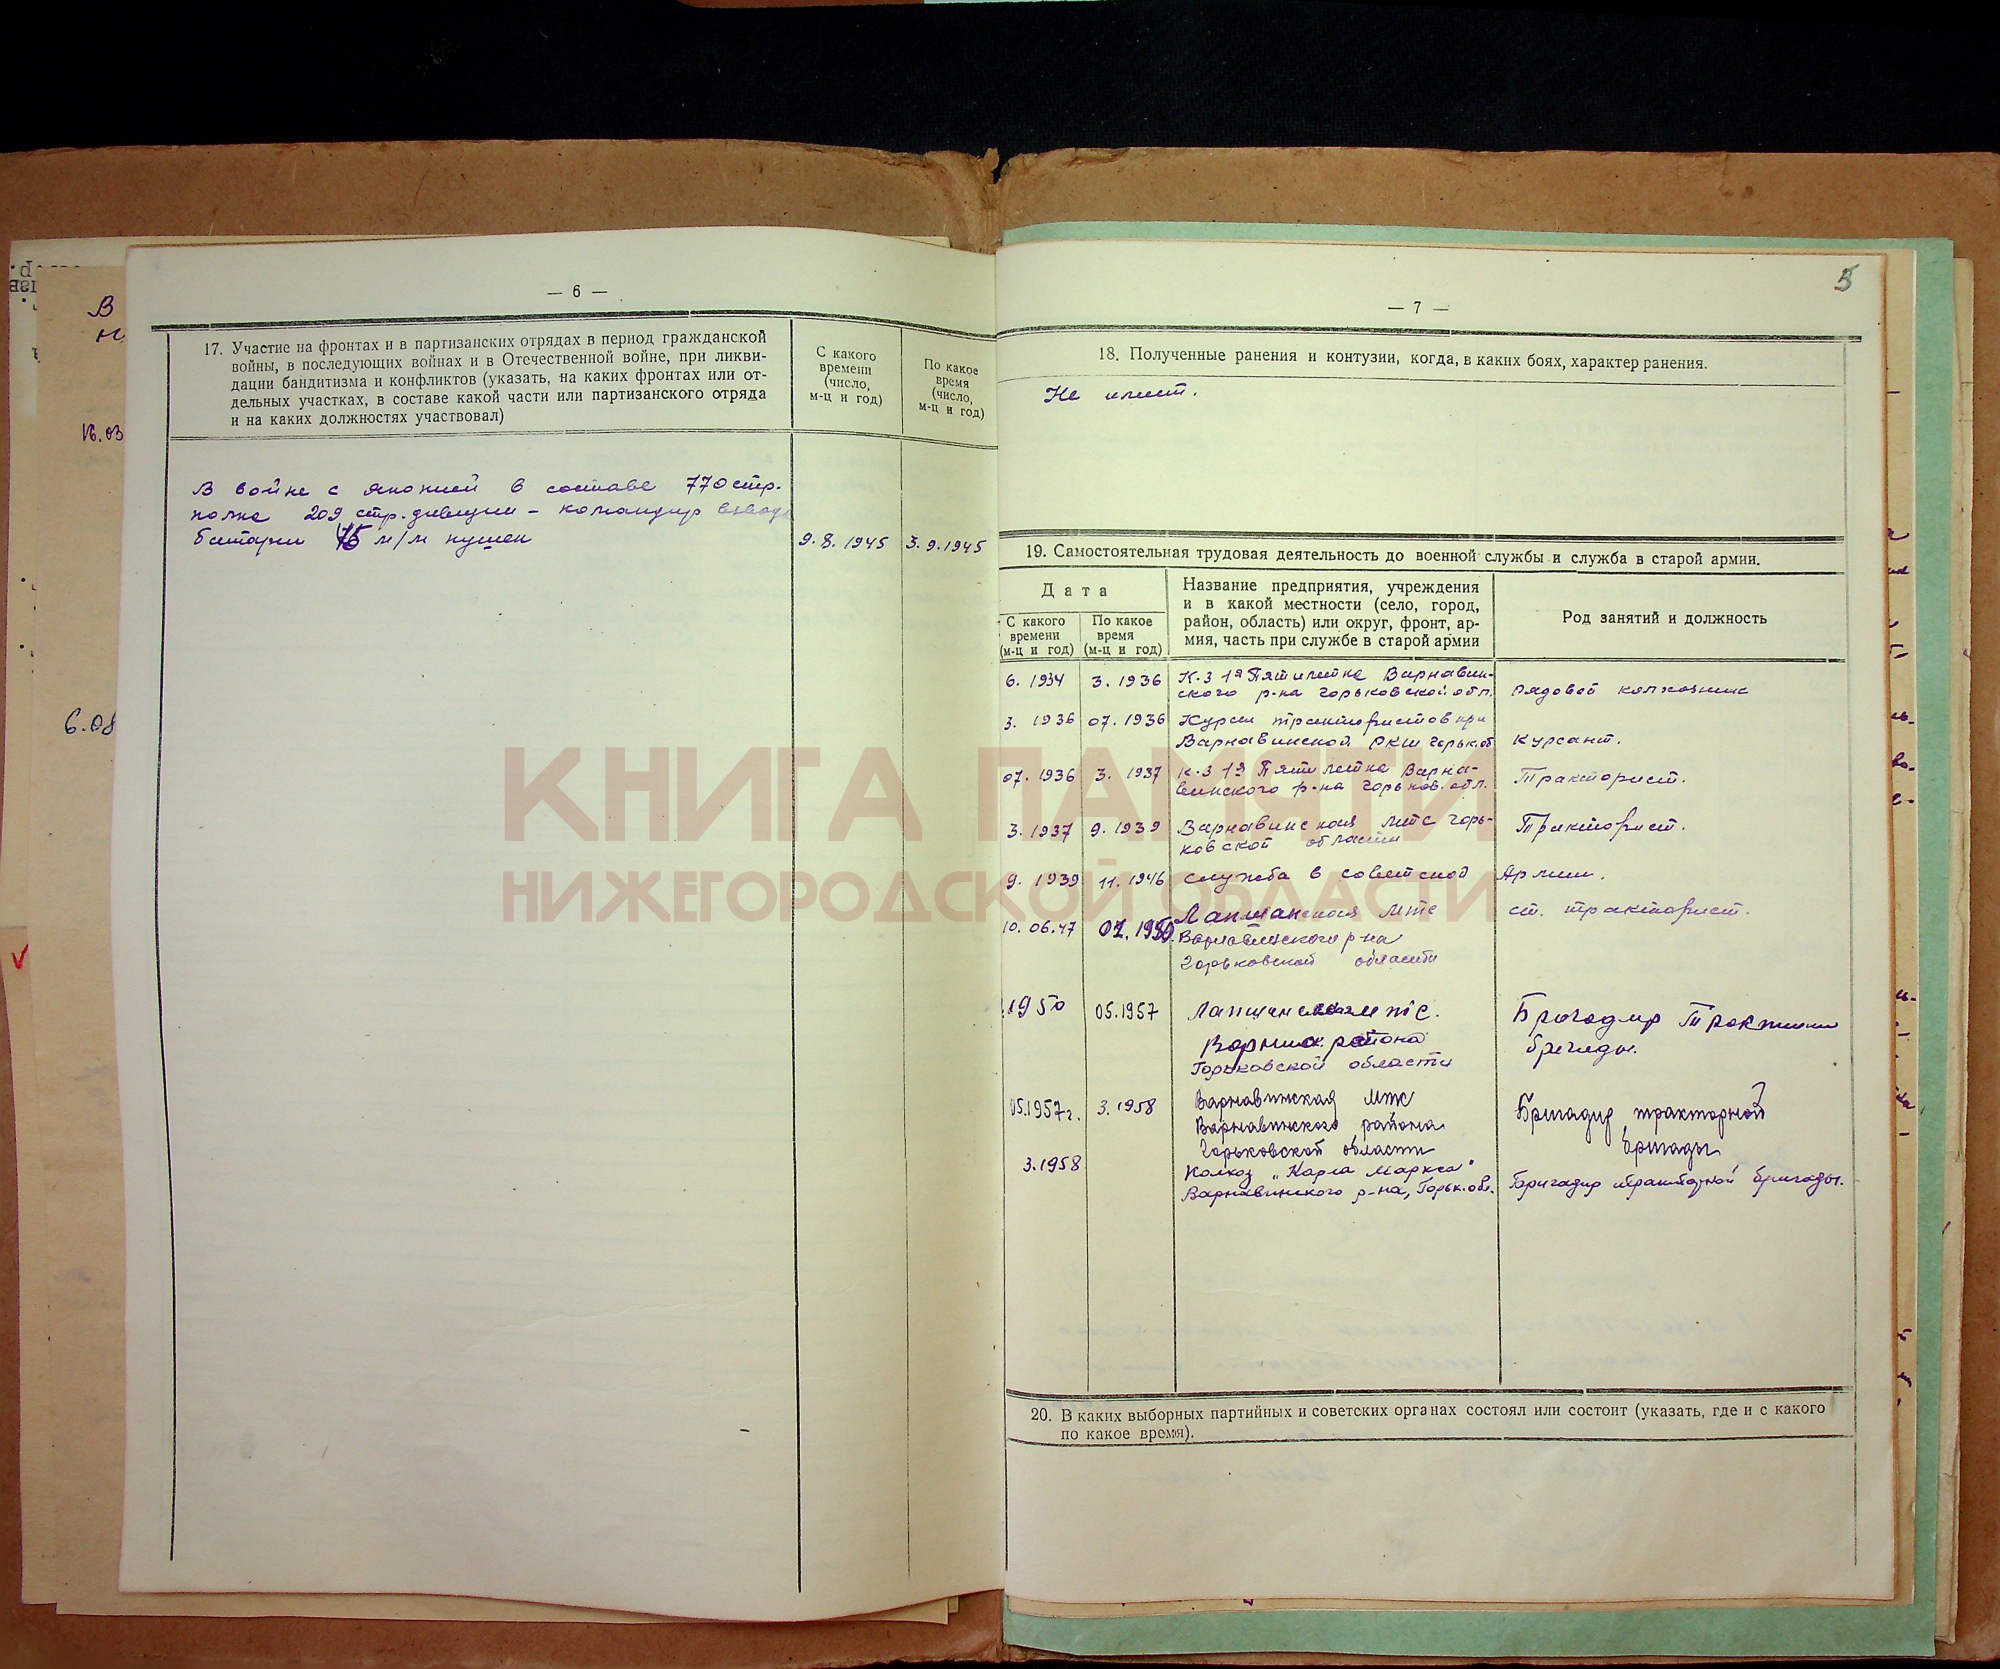 — 6 —
17. Участие на фронтах и в партизанских отрядах в период гражданской
войны, в последующих войнах и в Отечественной войне, при ликви-
дации бандитизма и конфликтов (указать, на каких фронтах или от-
дельных участках, в составе какой части или партизанского отряда
и на каких должностях участвовал)
С какого
времени
(число,
м-ц и год)
По какое
время
(число,
м-ц и год)
В войне с японией в составе 770 стр.
полка 209 стр. дивизии – командир взвода
батареи 76 м/м пушек
9.8.1945
3.9.1945
В
16.03
6.08
5
— 7 —
18. Полученные ранения и контузии, когда, в каких боях, характер ранения.
Не имеет.
19. Самостоятельная трудовая деятельность до военной службы и служба в старой армии.
Дата
С какого
времени
(м-ц и год)
По какое
время
(м-ц и год)
Название предприятия, учреждения
и в какой местности (село, город,
район, область) или округ, фронт, ар-
мия, часть при службе в старой армии
Род занятий и должность
6. 1934 3. 1936 К-з 1я Пятилетка Варнавин-
ского р-на горьковской обл. рядовой колхозник
3. 1936 07. 1936 Курсы трактористов при
Варнавинской РКШ горьк.об Курсант.
07. 1936 3. 1937 К-з 1я Пятилетка Варна-
винского р-на горьков. обл. Тракторист.
3. 1937 9. 1939 Варнавинская мтс горь-
ковской области Тракторист.
9. 1939 11. 1946 служба в советской Армии.
10. 06.47 02. 1950. Лапшанская мтс ст. тракторист.
Варнавинского р-на
горьковской области
1950 05.1957 Лапшанская мтс. Бригадир Тракторной
района бригады.
Горьковской области
05.1957г. 3.1958 Варнавинская мтс Бригадир тракторной
Варнавинского района бригады
Горьковской области
3.1958 Колхоз „Карла Маркса"
Варнавинского р-на, Горьк.обл. Бригадир тракторной бригады.
20. В каких выборных партийных и советских органах состоял или состоит (указать, где и с какого
по какое время).
КНИГА ПАМЯТИ
НИЖЕГОРОДСКОЙ ОБЛАСТИ